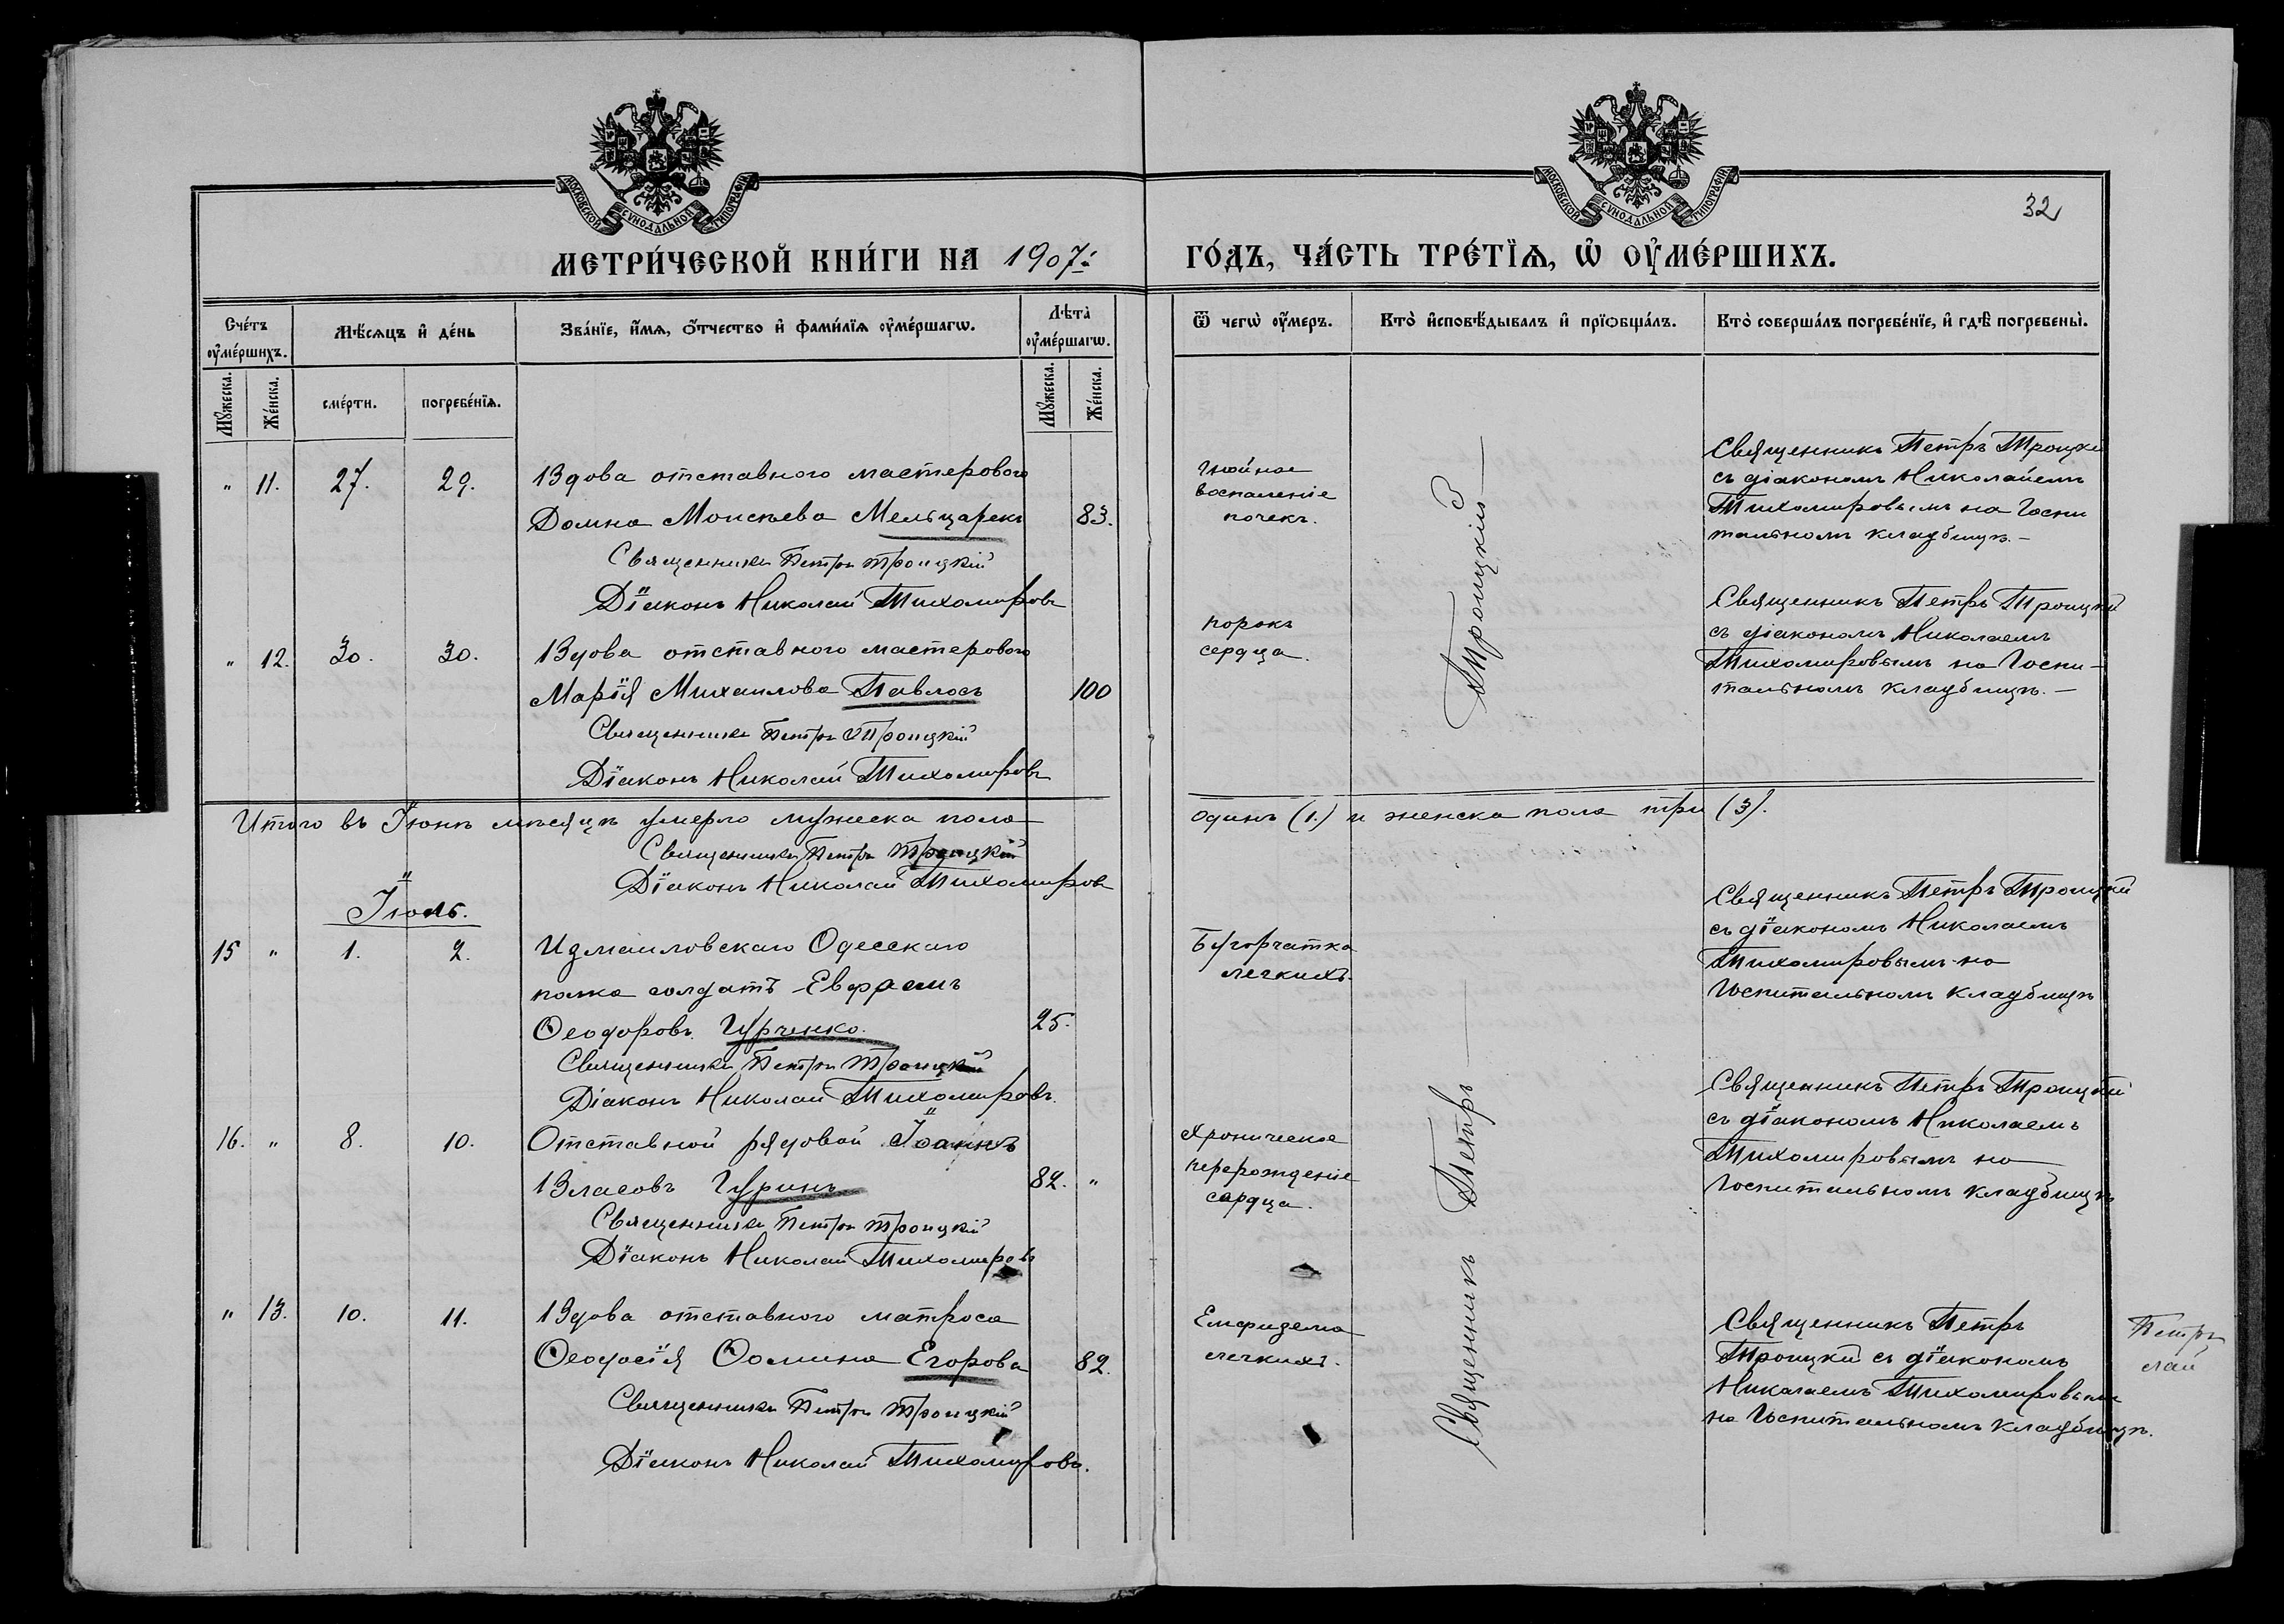 МОСКОВСКОЙ СУНОДАЛЬНОЙ ТИПОГРАФІИ
МОСКОВСКОЙ СУНОДАЛЬНОЙ ТИПОГРАФІИ
32
МЕТРИ́ЧЕСКОЙ КНИ́ГИ НА 1907 й
ГО́ДЪ, ЧА́СТЬ ТРЕ́ТЇѦ, Ѡ҆ ОУ҆МЕ́РШИХЪ.
Сче́тъ оу҆ме́ршихъ.
Мѣ́сѧцъ и҆ де́нь
Зва́нїе, и҆́мѧ, ѻ҆́тчество и҆ фами́лїѧ оу҆ме́ршагѡ.
Лѣта̀ оу҆ме́ршагѡ.
Ѿ чегѡ̀ оу҆́меръ.
Кто̀ и҆сповѣ́дывалъ и҆ прїѡбща́лъ.
Кто̀ соверша́лъ погребе́нїе, и҆ гдѣ̀ погребены̀.
Мꙋ́жеска.
Же́нска.
сме́рти.
погребе́нїѧ.
Мꙋ́жеска.
Же́нска.
" 11. 27. 29. Вдова отставного мастерового
Домна Моисѣева Мельцарекъ 83.
Священникъ Петръ Троицкій
Діаконъ Николай Тихомировъ
Гнойное
воспаленіе
почекъ.
Священникъ Петръ Троицкій
съ діакономъ Николайемъ
Тихомировымъ на Госпи
тальномъ кладбищѣ. —
" 12. 30. 30. Вдова отставного мастерового
Марія Михаилова Павлось 100
Священникъ Петръ Троицкій
Діаконъ Николай Тихомировъ
порокъ
сердца.
Священникъ Петръ Троицкій
съ діакономъ Николаемъ
Тихомировымъ на Госпи-
тальномъ кладбищѣ. —
Итого въ Іюнѣ мѣсяцѣ умерло мужеска пола
одинъ (1.) и женска пола три (3).
Священникъ Петръ Троицкій
Діаконъ Николай Тихомировъ
Іюль.
15 " 1. 2. Измаиловскаго Одесскаго
полка солдатъ Ефраемъ
Ѳеодоровъ Гурченко. 25.
Священникъ Петръ Троицкій
Діаконъ Николай Тихомировъ.
Бугорчатка
легкихъ.
Священникъ Петръ Троицкій
съ діакономъ Николаемъ
Тихомировымъ на
Госпитальномъ кладбищѣ
16. " 8. 10. Отставной рядовой Іоаннъ
Власовъ Гуринъ 82. "
Священникъ Петръ Троицкій
Діаконъ Николай Тихомировъ
Хроническое
перерожденіе
сердца.
Священникъ Петръ Троицкій
съ діакономъ Николаемъ
Тихомировымъ на
Госпитальномъ кладбищѣ
" 13. 10. 11. Вдова отставного матроса
Ѳеодосія Ѳомина Егорова 82.
Священникъ Петръ Троицкій
Діаконъ Николай Тихомировъ.
Емфизема
легкихъ.
Священникъ Петръ
Троицкій съ діакономъ
Николаемъ Тихомировымъ
на Госпитальномъ кладбищѣ.
Священникъ Петръ — Троицкій —
Петръ
лай